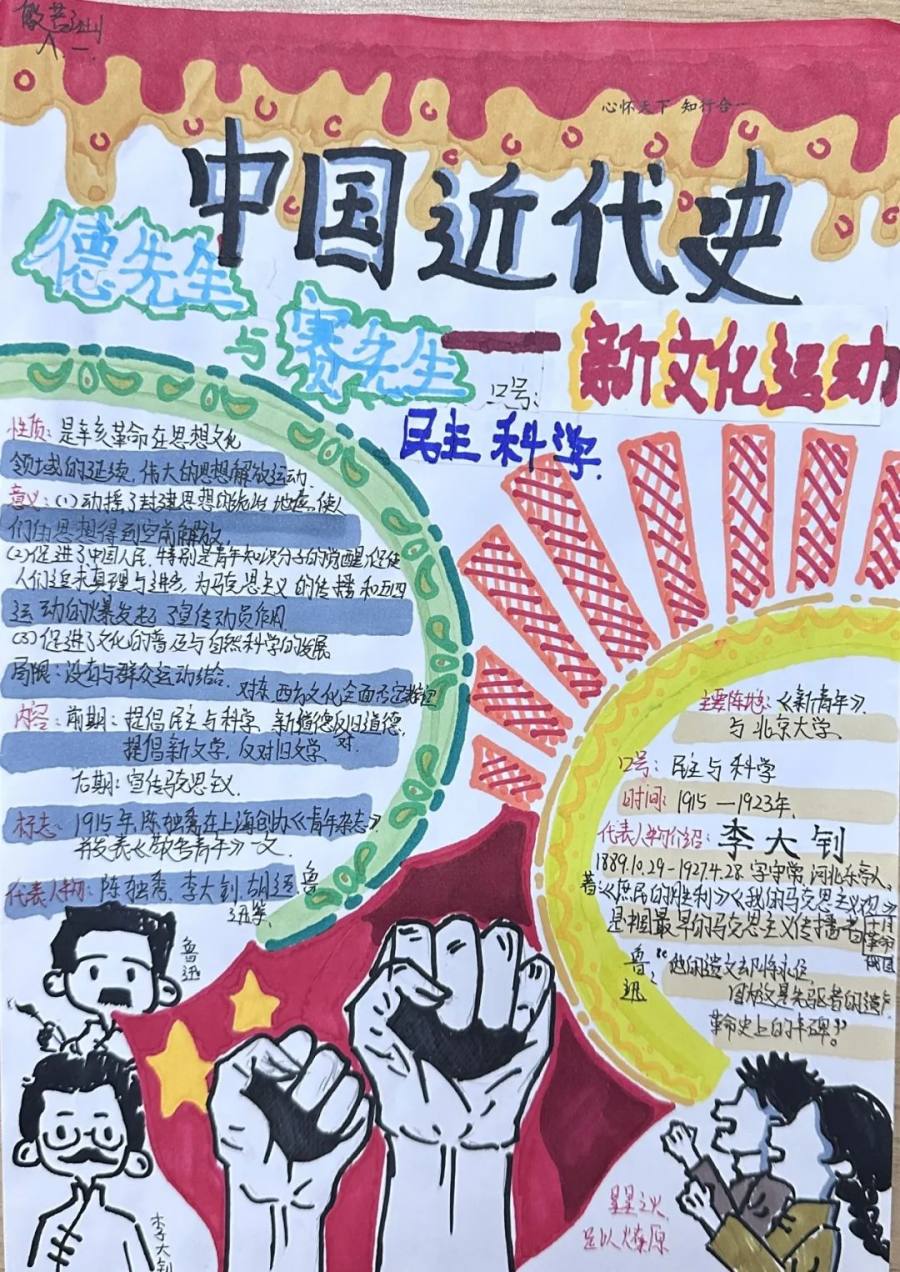 八.一
心怀天下 知行合一
中国近代史
德先生
与 赛先生 —— 新文化运动
口号:
民主 科学
性质: 是辛亥革命在思想文化
领域的延续, 伟大的思想解放运动.
意义: (1) 动摇了封建思想的统治地位, 使人
们的思想得到空前解放.
(2) 促进了中国人民, 特别是青年知识分子的觉醒, 促使
人们追求真理与进步, 为马克思主义的传播和五四
运动的爆发起了宣传动员作用
(3) 促进了文化的普及与自然科学的发展
局限: 没有与群众运动结合. 对东西方文化全面否定
内容: 前期: 提倡民主与科学, 新道德反旧道德,
提倡新文学, 反对旧文学. 对
后期: 宣传马克思主义.
标志: 1915年, 陈独秀在上海创办《青年杂志》,
并发表《敬告青年》一文.
代表人物: 陈独秀, 李大钊, 胡适, 鲁
迅等
主要阵地: 《新青年》,
与北京大学
口号: 民主与科学
时间: 1915 —1923年
代表人物介绍: 李大钊
1889.10.29-1927.4.28 字守常 河北乐亭人,
著《庶民的胜利》《我的马克思主义观》
是中国最早的马克思主义传播者
鲁迅: "他的遗文却将永住,
因为这是先驱者的遗产,
革命史上的丰碑。"
鲁迅
李大钊
星星之火
足以燎原